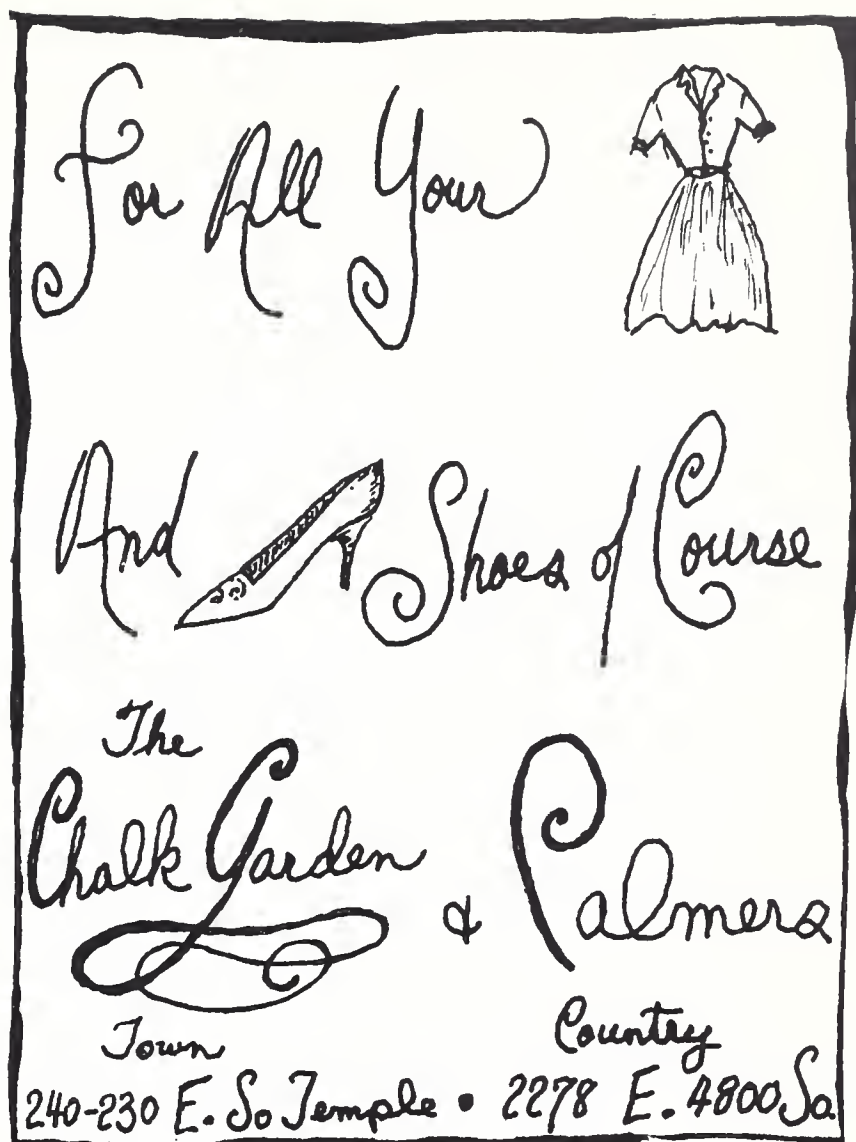 For All Your
And Shoes of Course
The
Chalk Garden & Palmers
Town Country
240-230 E. So Temple • 2278 E. 4800 So.